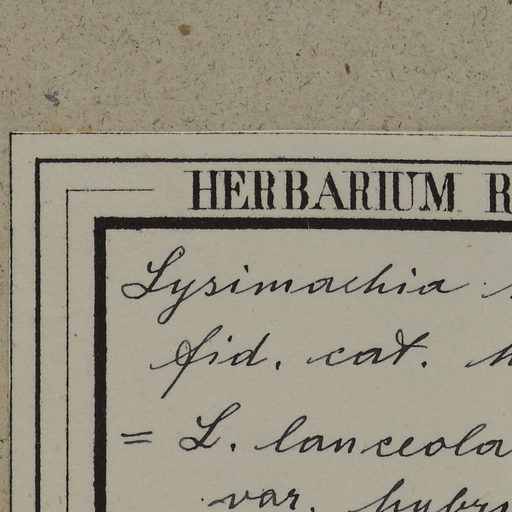 HERBARIUM R
Lysimachia
fid. cat.
= L. lanceola
var. hybri